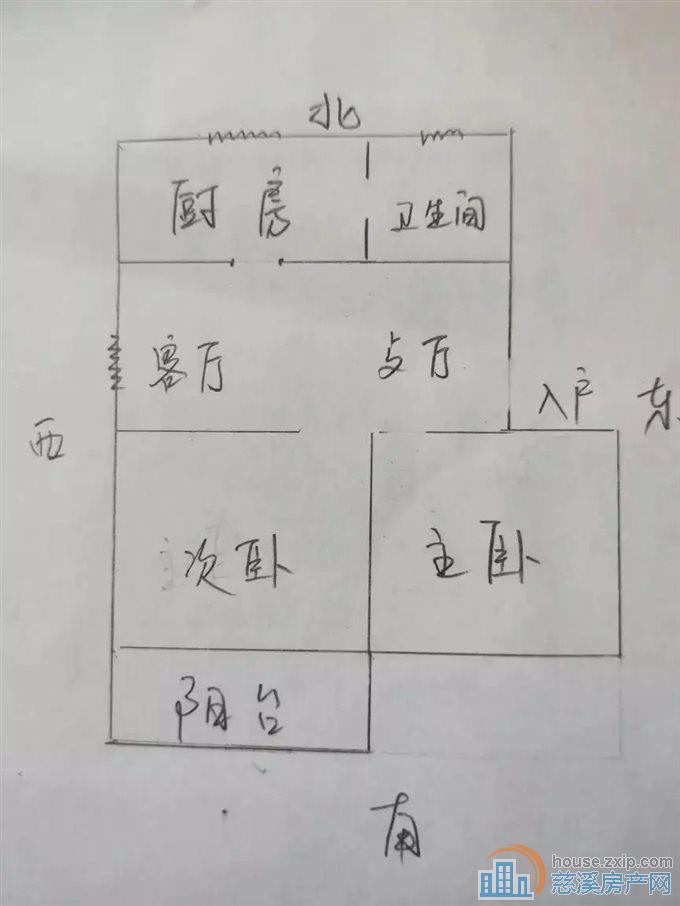 北
厨房
卫生间
客厅
歺厅
入户
东
西
次卧
主卧
阳台
南
house.zxip.com
慈溪房产网